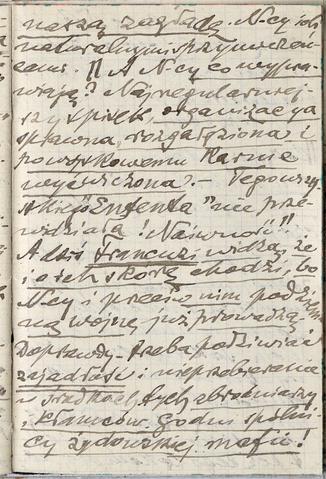 naszą zagładę. N-cy ich
naturalnymi sprzymierzeń-
cami. !! A N-cy co wypra-
wiają? Najregularniej-
szy spisek, organizacja
sprawna, rozgałęziona i
powojskowemu karnie
wyćwiczona. – Tego wszy-
stkiego Ententa "nie prze-
widziała! Naiwność!!
A dziś Francuzi widzą, że
i o ich skórę chodzi, bo
N-cy i przeciw nim podziem-
ną wojnę już prowadzą.
Doprawdy trzeba podziwiać
zajadłość i nieprzebieranie
w środkach tych
kłamców, godni spólni-
cy żydowskiej mafii!